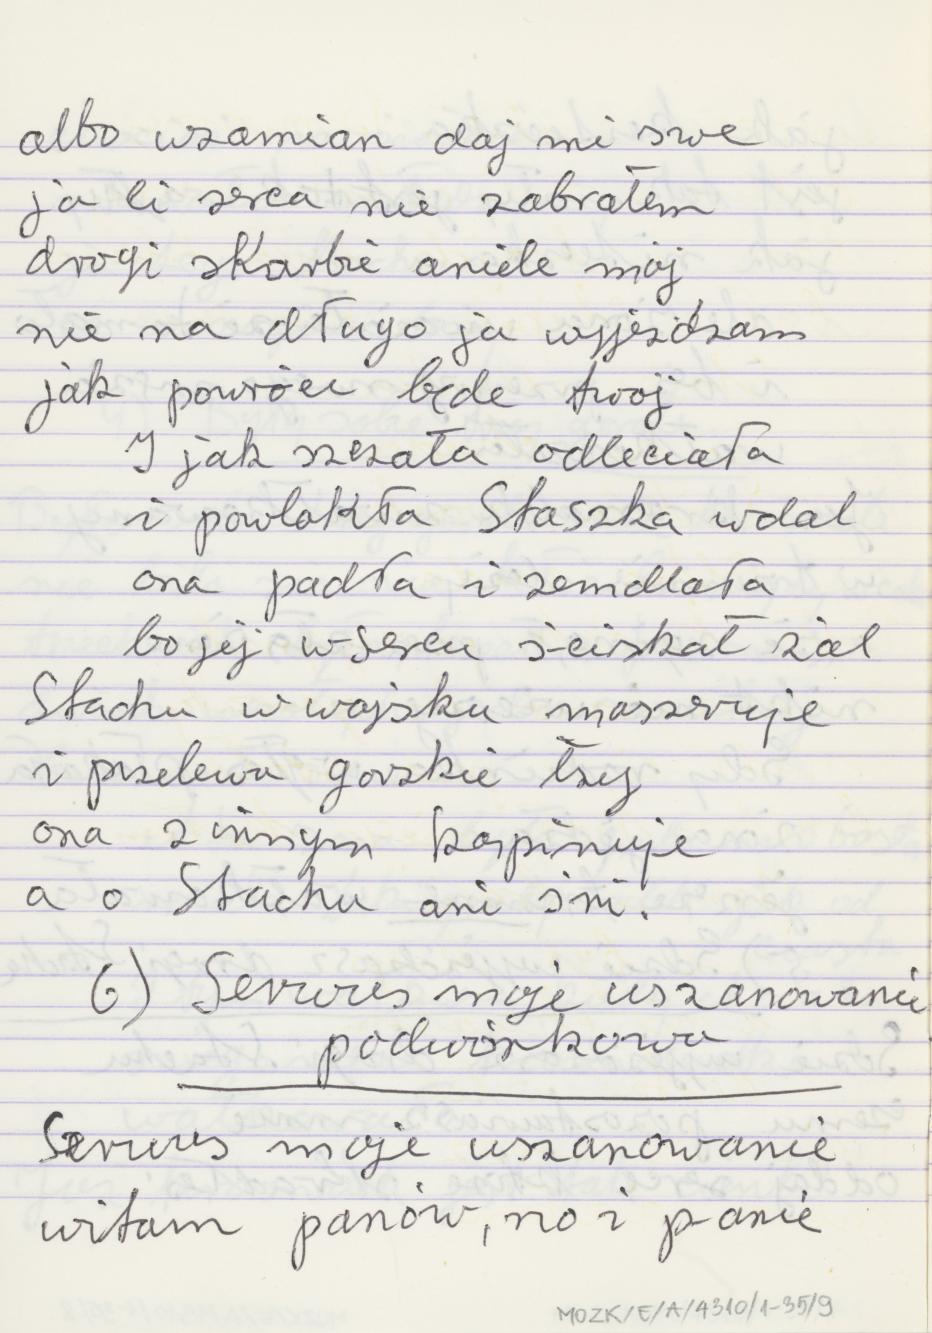 albo wzamian daj mi swe
ja ci serca nie zabrałem
drogi skarbie aniele mój
nie na długo ja wyjeżdzam
jak powróce będe twoj
I jak szczała odleciała
i powlokła Staszka wdal
ona padła i zemdlała
bo jej w sercu ściskał żal
Stachu w wojsku maszeruje
i przelewa gorzkie łzy
ona z innym kaspinuje
a o Stachu ani śni.
6) Serwus moje uszanowanie
podwórkowa
Serwus moje uszanowanie
witam panów, no i panie
MOZK/E/A/4310/1-35/9